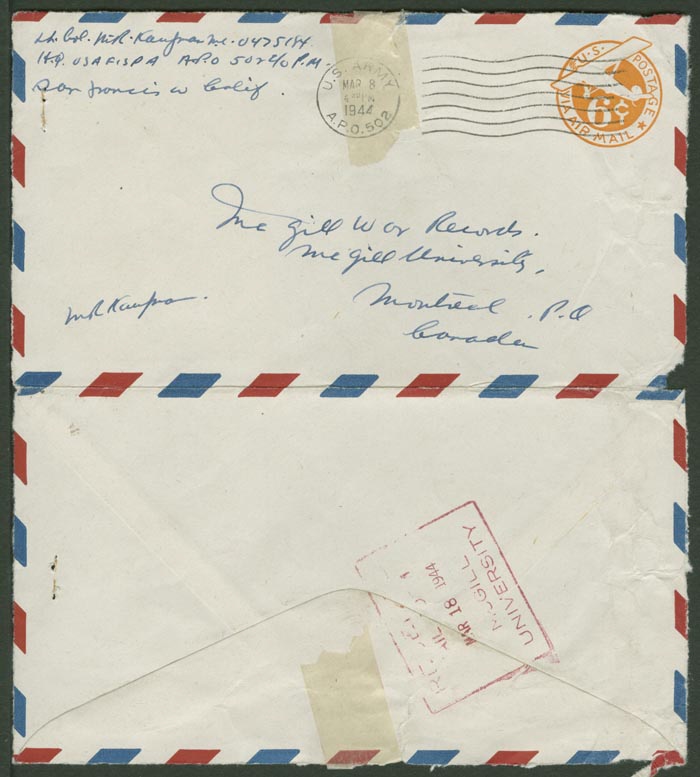 Lt. Col. M.R. Kaufman M.C. 0475184
H.Q. USAFISPA A.P.O 502 c/o P.M.
San Francisco Calif.
U.S. ARMY
MAR 8
1944
A.P.O. 502
U.S. POSTAGE
6¢
VIA AIR MAIL
McGill War Records.
McGill University,
Montreal. P.Q
Canada
MR Kaufman.
MAR 18 1944
McGILL
UNIVERSITY